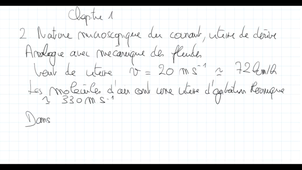 Chapitre 1
2. Nature microscopique du courant, vitesse de dérive
Analogie avec mécanique des fluides
Vent de vitesse v = 20 m s⁻¹ ≃ 72 km/h
Les molécules d'air ont une vitesse d'agitation thermique
~ 330 m s⁻¹
Dans